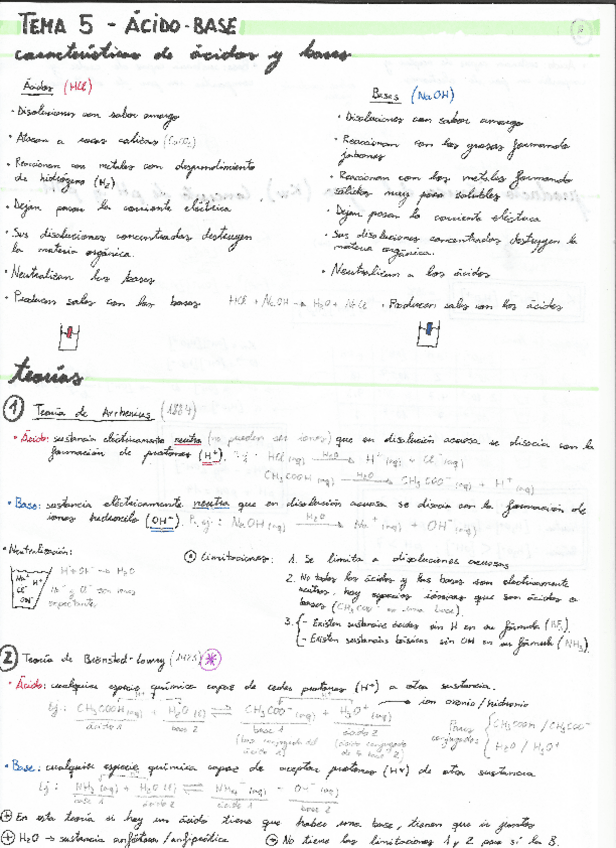 TEMA 5 - ÁCIDO-BASE
características de ácidos y bases
Ácidos (HCl)
· Disoluciones con sabor amargo
· Atacan a rocas calizas (CaCO₃)
· Reaccionan con metales con desprendimiento
de hidrógeno (H₂)
· Dejan pasar la corriente eléctrica
· Sus disoluciones concentradas destruyen
la materia orgánica.
· Neutralizan las bases
· Producen sales con las bases HCl + NaOH → H₂O + NaCl
Bases (NaOH)
· Disoluciones con sabor amargo
· Reaccionan con las grasas formando
jabones
· Reaccionan con los metales formando
sólidos muy poco solubles
· Dejan pasar la corriente eléctrica
· Sus disoluciones concentradas destruyen la
materia orgánica.
· Neutralizan a los ácidos
· Producen sales con los ácidos
teorías
1 Teoría de Arrhenius (1884)
· Ácido: sustancia eléctricamente neutra (no pueden ser iones) que en disolución acuosa se disocia con la
formación de protones (H⁺). Ej: HCl (aq) H₂O→ H⁺ (aq) + Cl⁻ (aq)
CH₃COOH (aq) H₂O→ CH₃COO⁻ (aq) + H⁺
· Base: sustancia eléctricamente neutra que en disolución acuosa se disocia con la formación de
iones hidroxilo (OH⁻). P. ej.: NaOH (aq) H₂O→ Na⁺ (aq) + OH⁻ (aq)
· Neutralización:
H⁺ + OH⁻ → H₂O
Na⁺ y Cl⁻ son iones
espectadores
Na⁺ H⁺
Cl⁻
OH⁻
Limitaciones: 1. Se limita a disoluciones acuosas
2. No todos los ácidos y las bases son eléctricamente
neutros, hay especies iónicas que son ácidos o
bases (CH₃COO⁻ es una base).
3. - Existen sustancias ácidas sin H en su fórmula
- Existen sustancias básicas sin OH en su fórmula (NH₃).
2 Teoría de Brønsted-Lowry (1923) *
· Ácido: cualquier especie química capaz de ceder protones (H⁺) a otra sustancia.
Ej: CH₃COOH (aq) + H₂O (l) ⇌ CH₃COO⁻ (aq) + H₃O⁺ (aq) → ion oxonio / hidronio
ácido 1 base 2 base 1 ácido 2
(base conjugada del ácido 1) (ácido conjugado de la base 2)
Pares conjugados CH₃COOH / CH₃COO⁻
H₂O / H₃O⁺
· Base: cualquier especie química capaz de aceptar protones (H⁺) de otra sustancia
Ej: NH₃ (aq) + H₂O (l) ⇌ NH₄⁺ (aq) + OH⁻ (aq)
base 1 ácido 2 ácido 1 base 2
⊕ En esta teoría si hay un ácido tiene que haber una base, tienen que ir juntos
⊕ H₂O → sustancia anfótera / anfiprótica
⊖ No tiene las limitaciones 1 y 2 pero sí la 3.